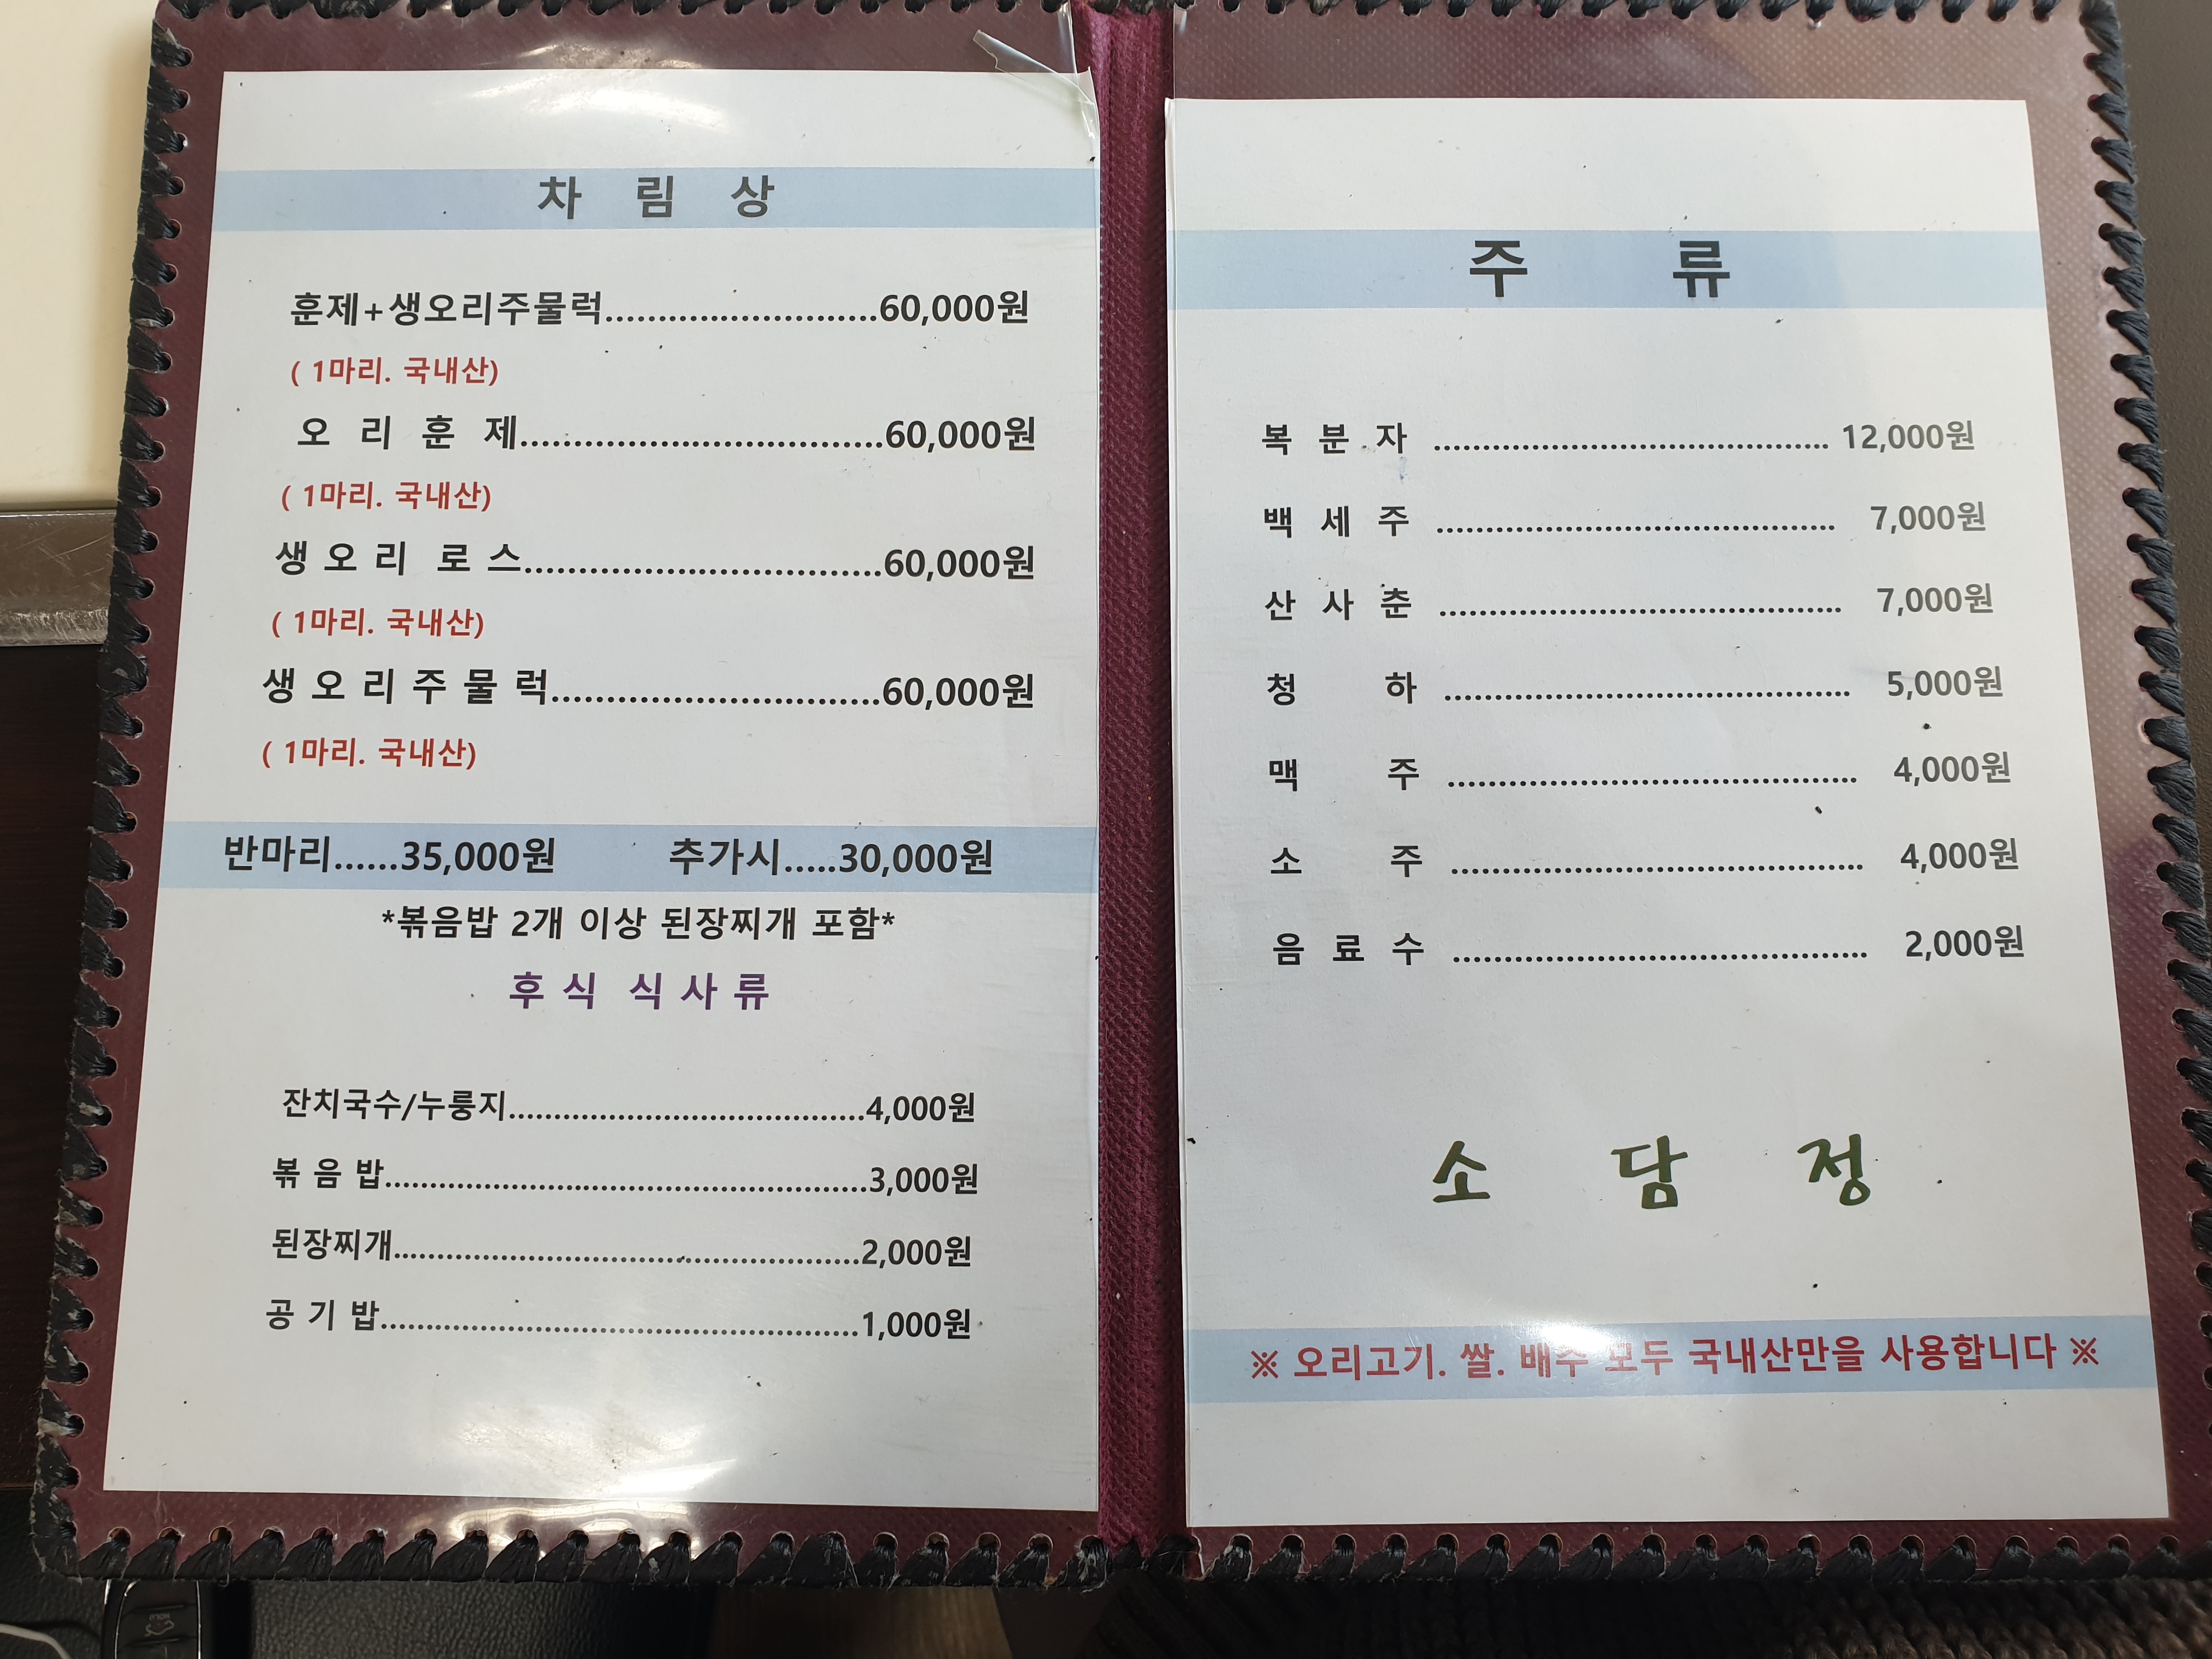 차 림 상
훈제+생오리주물럭..........................60,000원
( 1마리. 국내산)
오 리 훈 제...................................60,000원
( 1마리. 국내산)
생 오 리 로 스..................................60,000원
( 1마리. 국내산)
생 오 리 주 물 럭...............................60,000원
( 1마리. 국내산)
반마리......35,000원 추가시.....30,000원
*볶음밥 2개 이상 된장찌개 포함*
후 식 식 사 류
잔치국수/누룽지.......................................4,000원
볶 음 밥.....................................................3,000원
된장찌개...................................................2,000원
공 기 밥....................................................1,000원
주 류
복 분 자 ....................................... 12,000원
백 세 주 ........................................ 7,000원
산 사 춘 ........................................ 7,000원
청 하 ........................................ 5,000원
맥 주 ........................................ 4,000원
소 주 ......................................... 4,000원
음 료 수 ......................................... 2,000원
소 담 정
※ 오리고기. 쌀. 배추 모두 국내산만을 사용합니다 ※